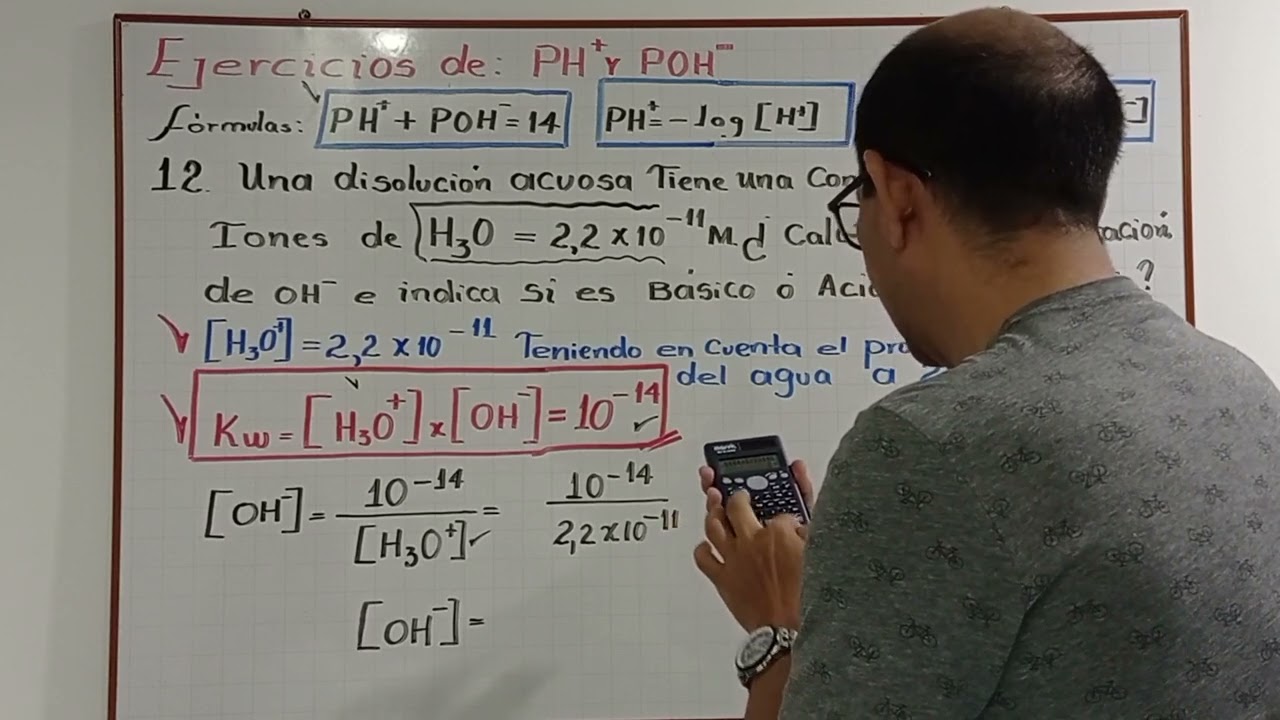 Ejercicios de: PH⁺ Y POH⁻
fórmulas: PH⁺ + POH⁻ = 14 PH⁺ = - log [H⁺] ⁻]
12. Una disolución acuosa Tiene una
Iones de H₃O = 2,2 × 10⁻¹¹ M
de OH⁻ e indica si es Básico ó ?
[H₃O⁺] = 2,2 × 10⁻¹¹ Teniendo en cuenta el
del agua a
Kw = [H₃O⁺] × [OH⁻] = 10⁻¹⁴
[OH⁻] = 10⁻¹⁴ / [H₃O⁺] = 10⁻¹⁴ / 2,2 × 10⁻¹¹
[OH⁻] =